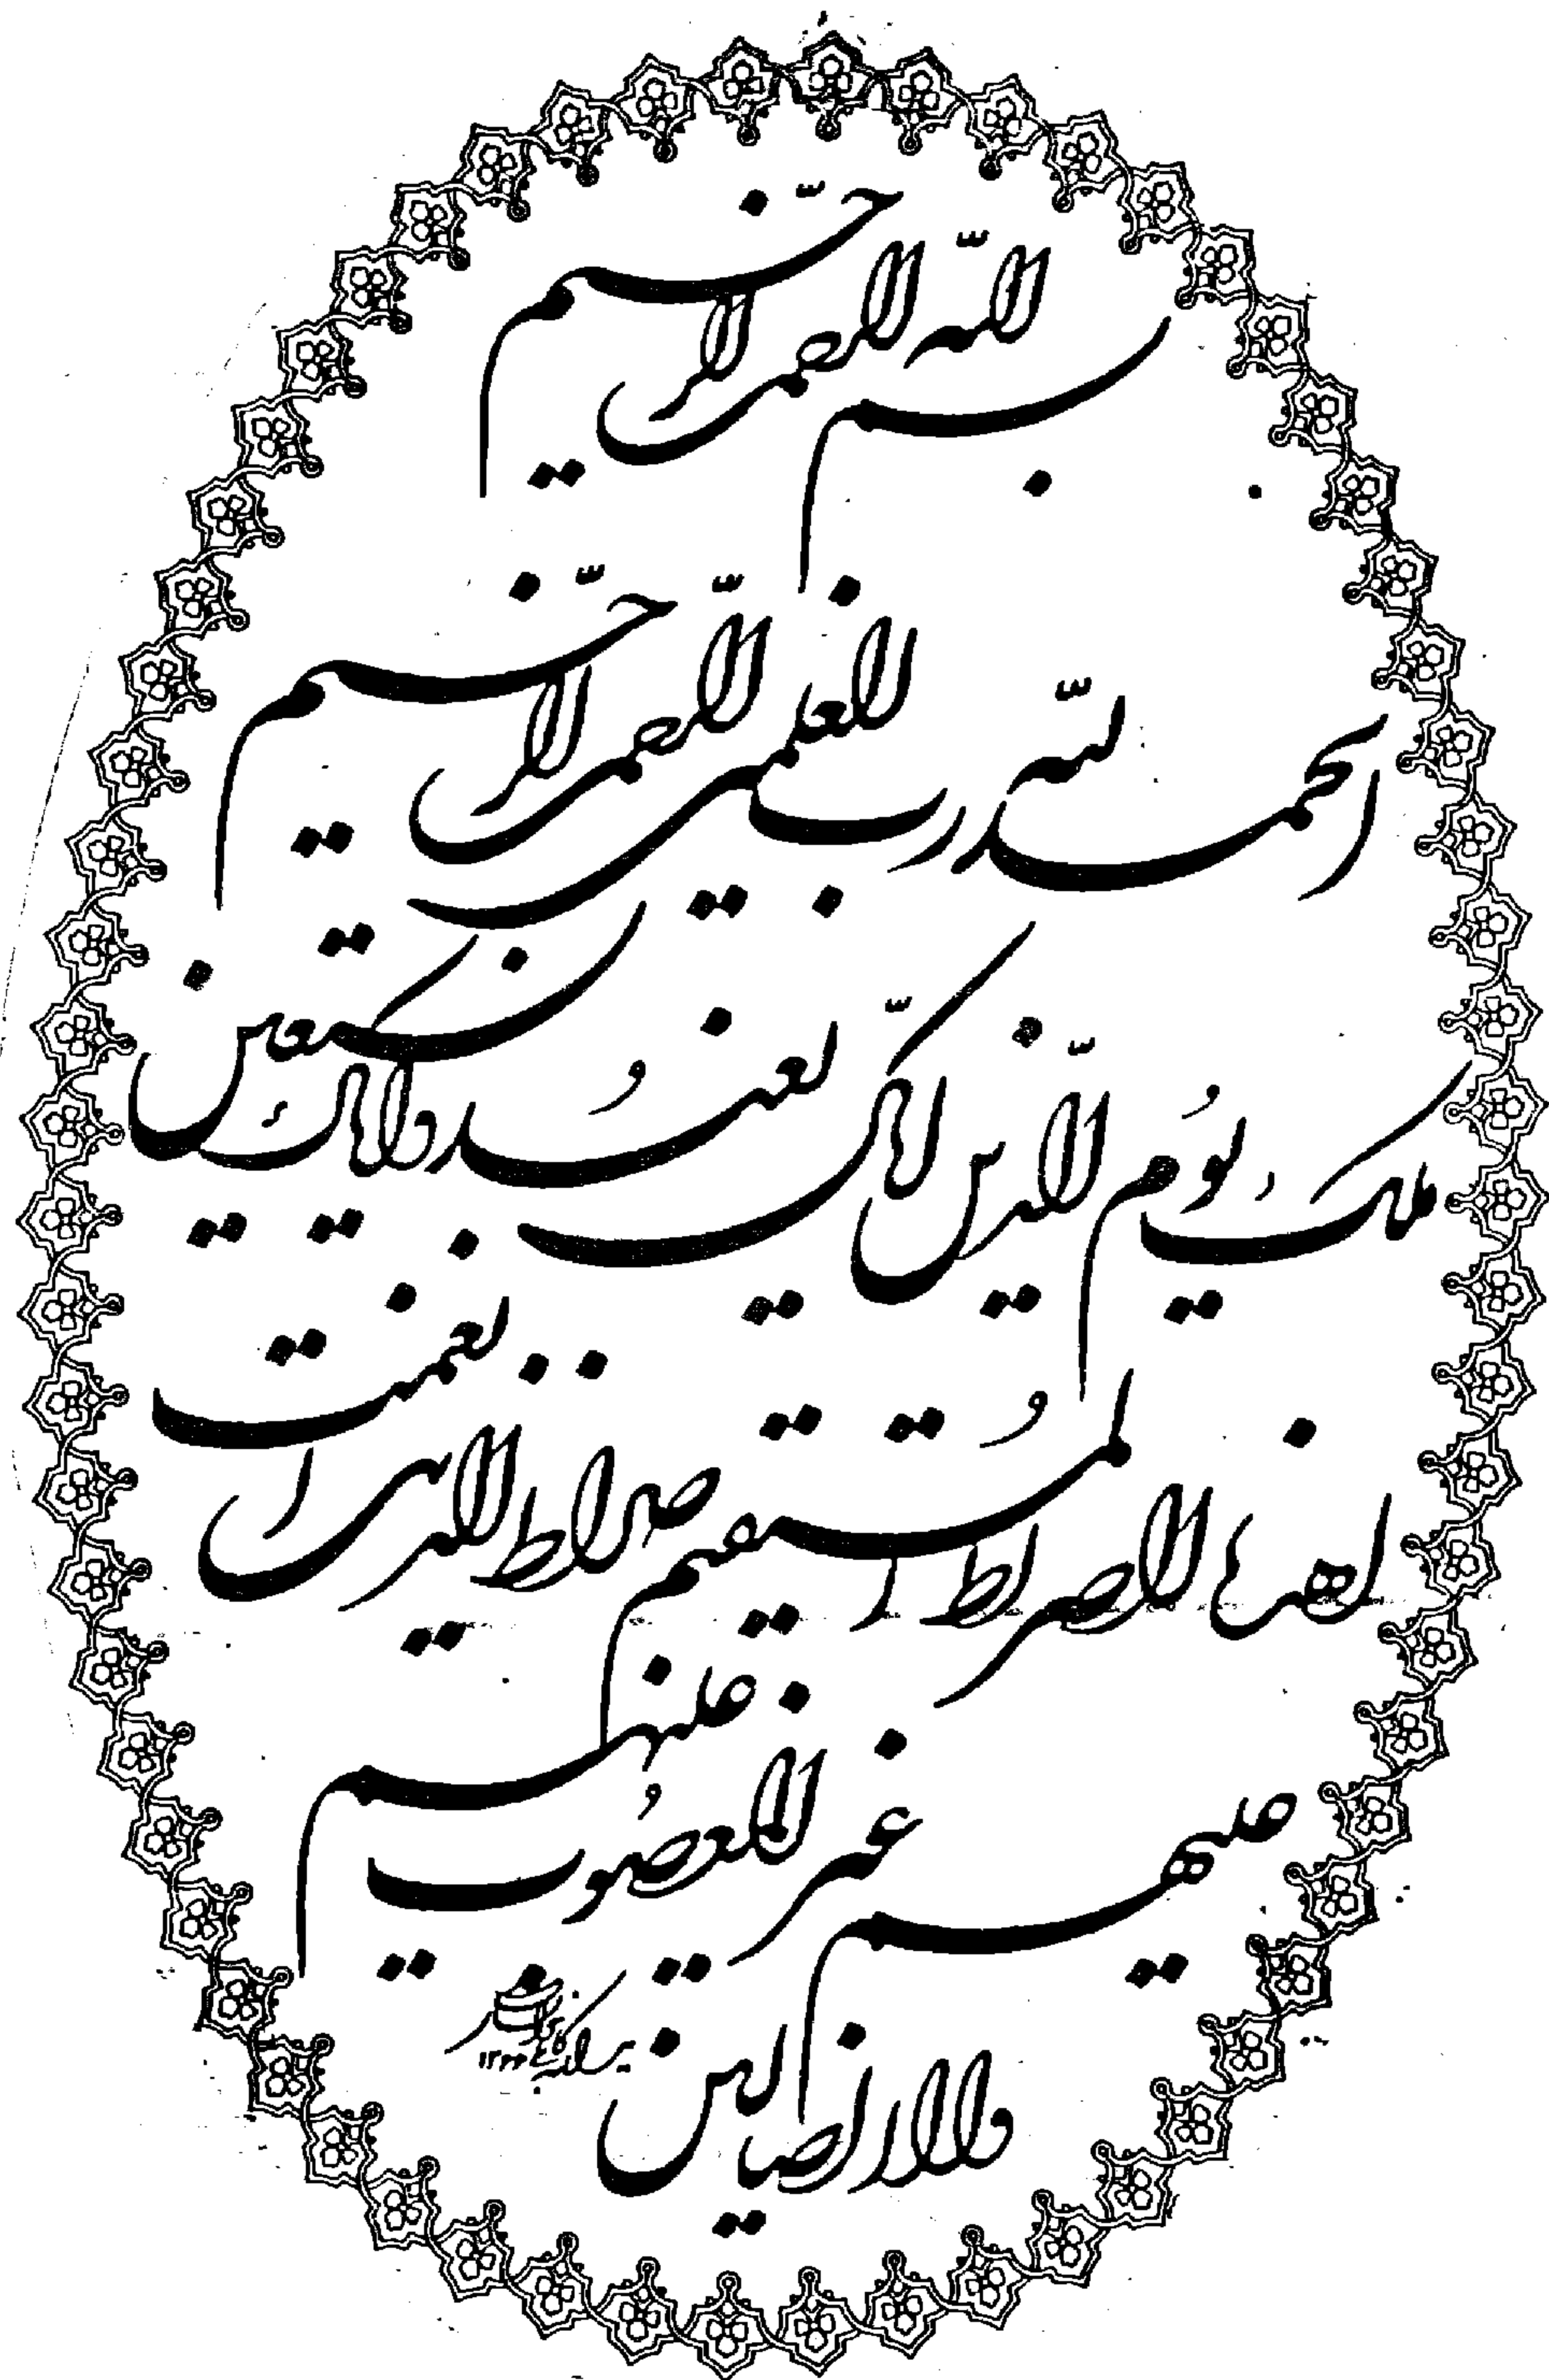 بسم الله الرحمن الرحیم
الحمد لله رب العلمین الرحمن الرحیم
ملک یوم الدین ایاک نعبد و ایاک نستعین
اهدنا الصراط المستقیم صراط الذین انعمت
علیهم غیر المغضوب علیهم
ولا الضالین